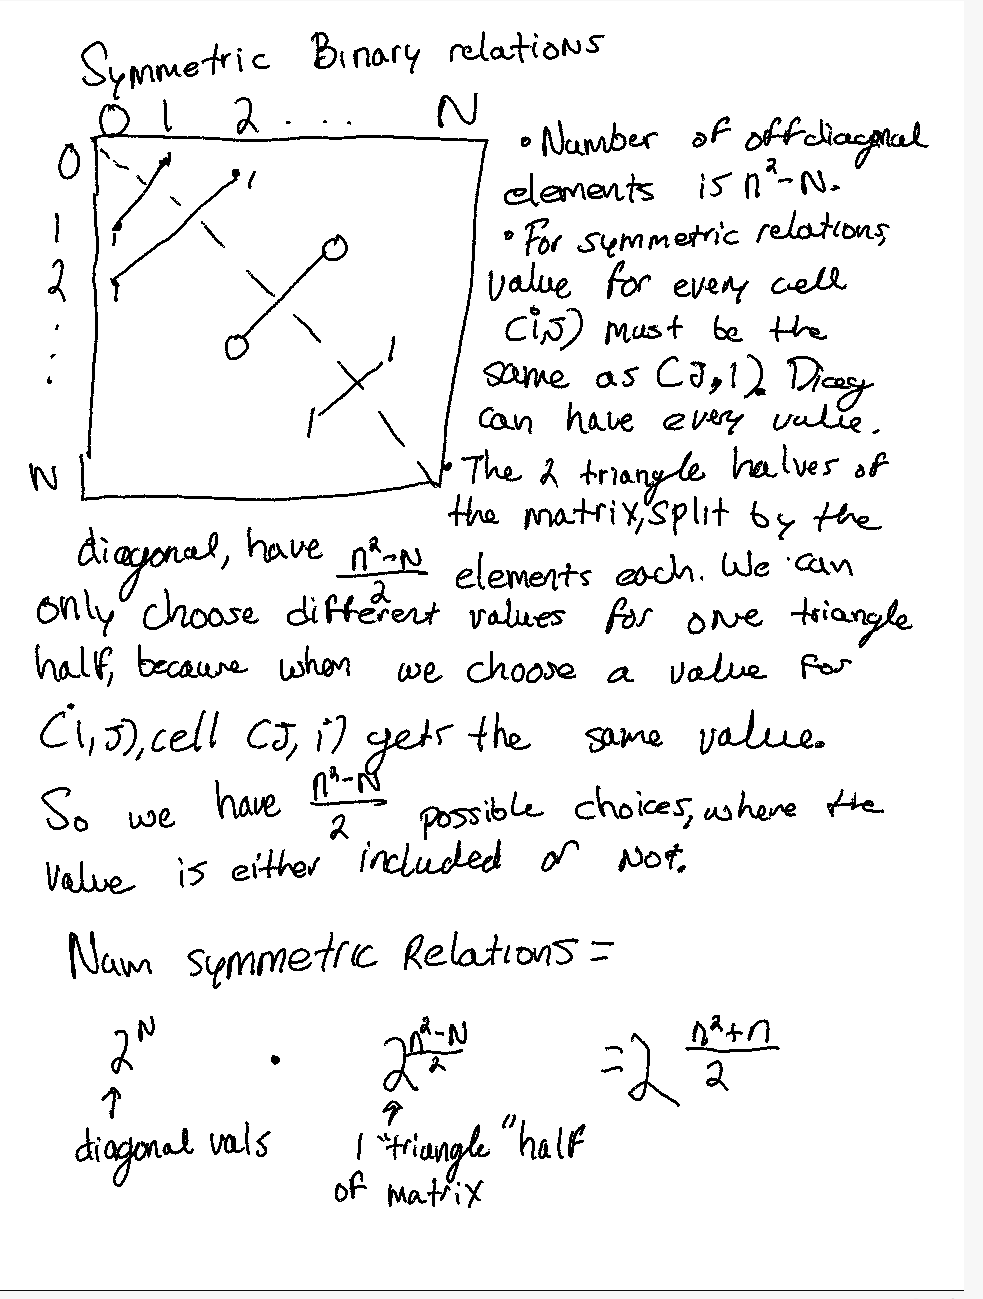 Symmetric Binary relations
0 1 2 . . . N
0
1
2
N
• Number of off diagonal
elements is n²-N.
• For symmetric relations,
value for every cell
(i,J) must be the
same as (J,i). Diag
can have every value.
• The 2 triangle halves of
the matrix, split by the
diagonal, have (n²-N)/2 elements each. We can
only choose different values for one triangle
half, because when we choose a value for
(i,J), cell (J,i) gets the same value.
So we have (n²-N)/2 possible choices, where the
value is either included or not.
Num symmetric Relations =
2^N · 2^((n²-N)/2) = 2^((n²+n)/2)
↑ ↑
diagonal vals 1 "triangle" half
of matrix